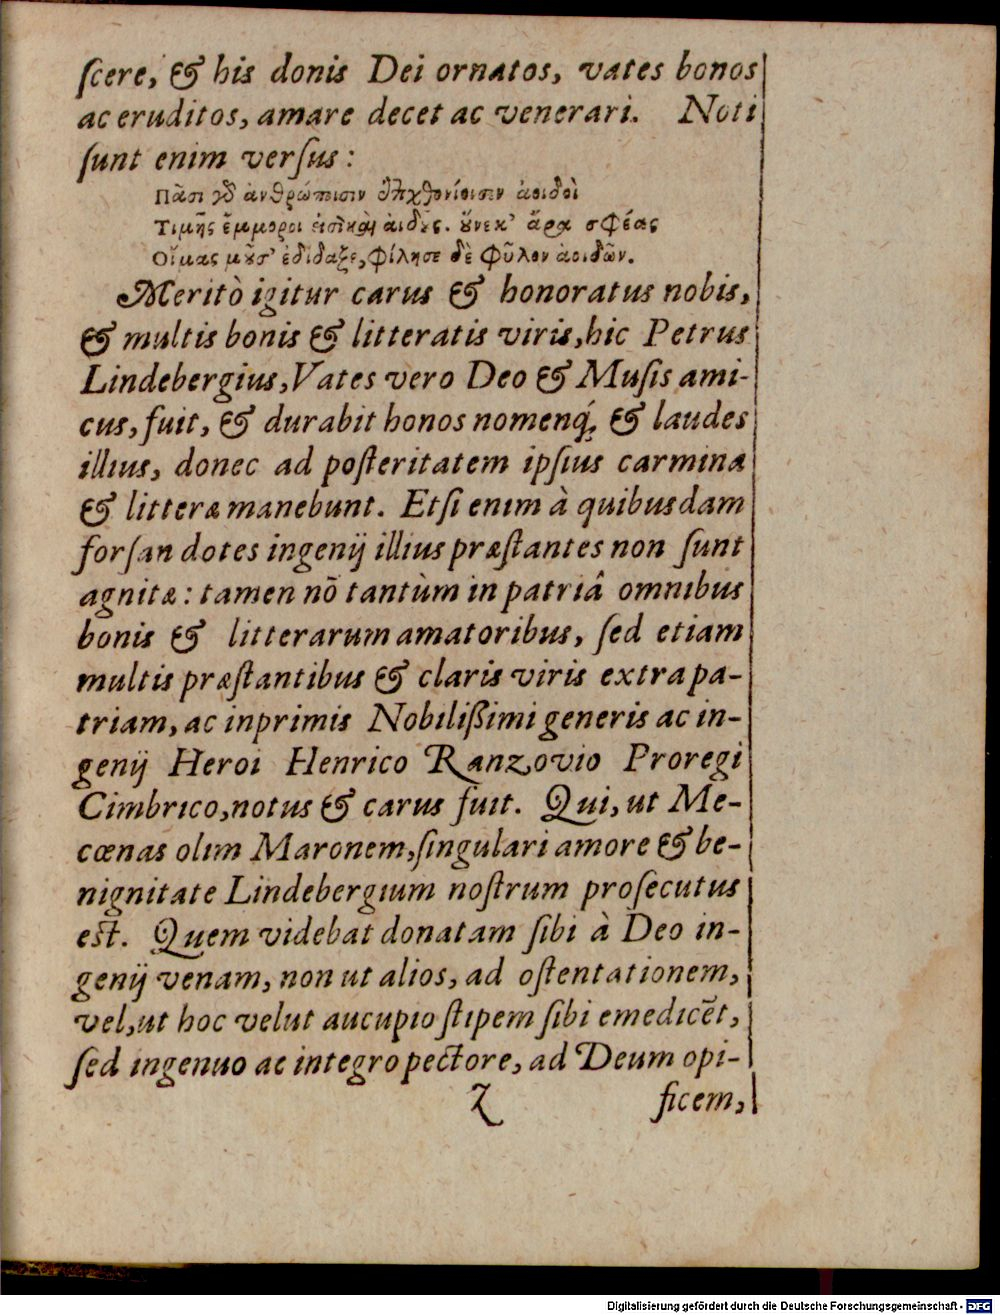 scere, & his donis Dei ornatos, vates bonos
ac eruditos, amare decet ac venerari. Noti
sunt enim versus:
Πᾶσι γὸ ἀνθρώποισιν ἐπιχθονίοισιν ἀοιδοὶ
Τιμῆς ἔμμοροι εἰσὶ καὶ αἰδοῦς. οὕνεκ' ἄρα σφέας
Οἴμας μοῦσ' ἐδίδαξε, φίλησε δὲ φῦλον ἀοιδῶν.
Meritò igitur carus & honoratus nobis,
& multis bonis & litteratis viris, hic Petrus
Lindebergius, Vates vero Deo & Musis ami-
cus, fuit, & durabit honos nomenq́; & laudes
illius, donec ad posteritatem ipsius carmina
& litteræ manebunt. Etsi enim à quibusdam
forsan dotes ingenij illius præstantes non sunt
agnitæ: tamen nō tantùm in patriâ omnibus
bonis & litterarum amatoribus, sed etiam
multis præstantibus & claris viris extra pa-
triam, ac inprimis Nobilißimi generis ac in-
genij Heroi Henrico Ranzovio Proregi
Cimbrico, notus & carus fuit. Qui, ut Me-
cœnas olim Maronem, singulari amore & be-
nignitate Lindebergium nostrum prosecutus
est. Quem videbat donatam sibi à Deo in-
genij venam, non ut alios, ad ostentationem,
vel, ut hoc velut aucupio stipem sibi emedicēt,
sed ingenuo ac integro pectore, ad Deum opi-
Z ficem,
Digitalisierung gefördert durch die Deutsche Forschungsgemeinschaft - DFG